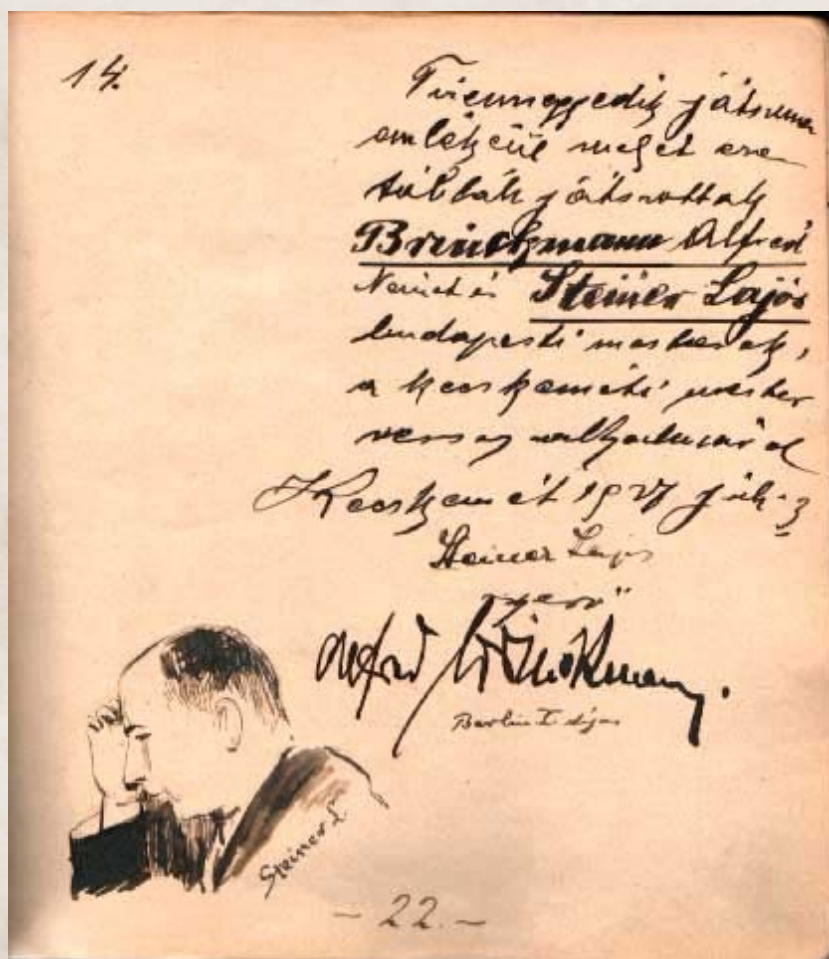 14.
Tizennegyedik játszma
emlékéül melyet ezen
táblán játszottak
Brinckmann Alfred
Német és Steiner Lajos
budapesti mesterek,
a kecskeméti mester
verseny alkalmával
Kecskemét 1927 júli. 3
Steiner Lajos
Alfred Brinckmann.
Berlin I díjas
Steiner L
- 22. -